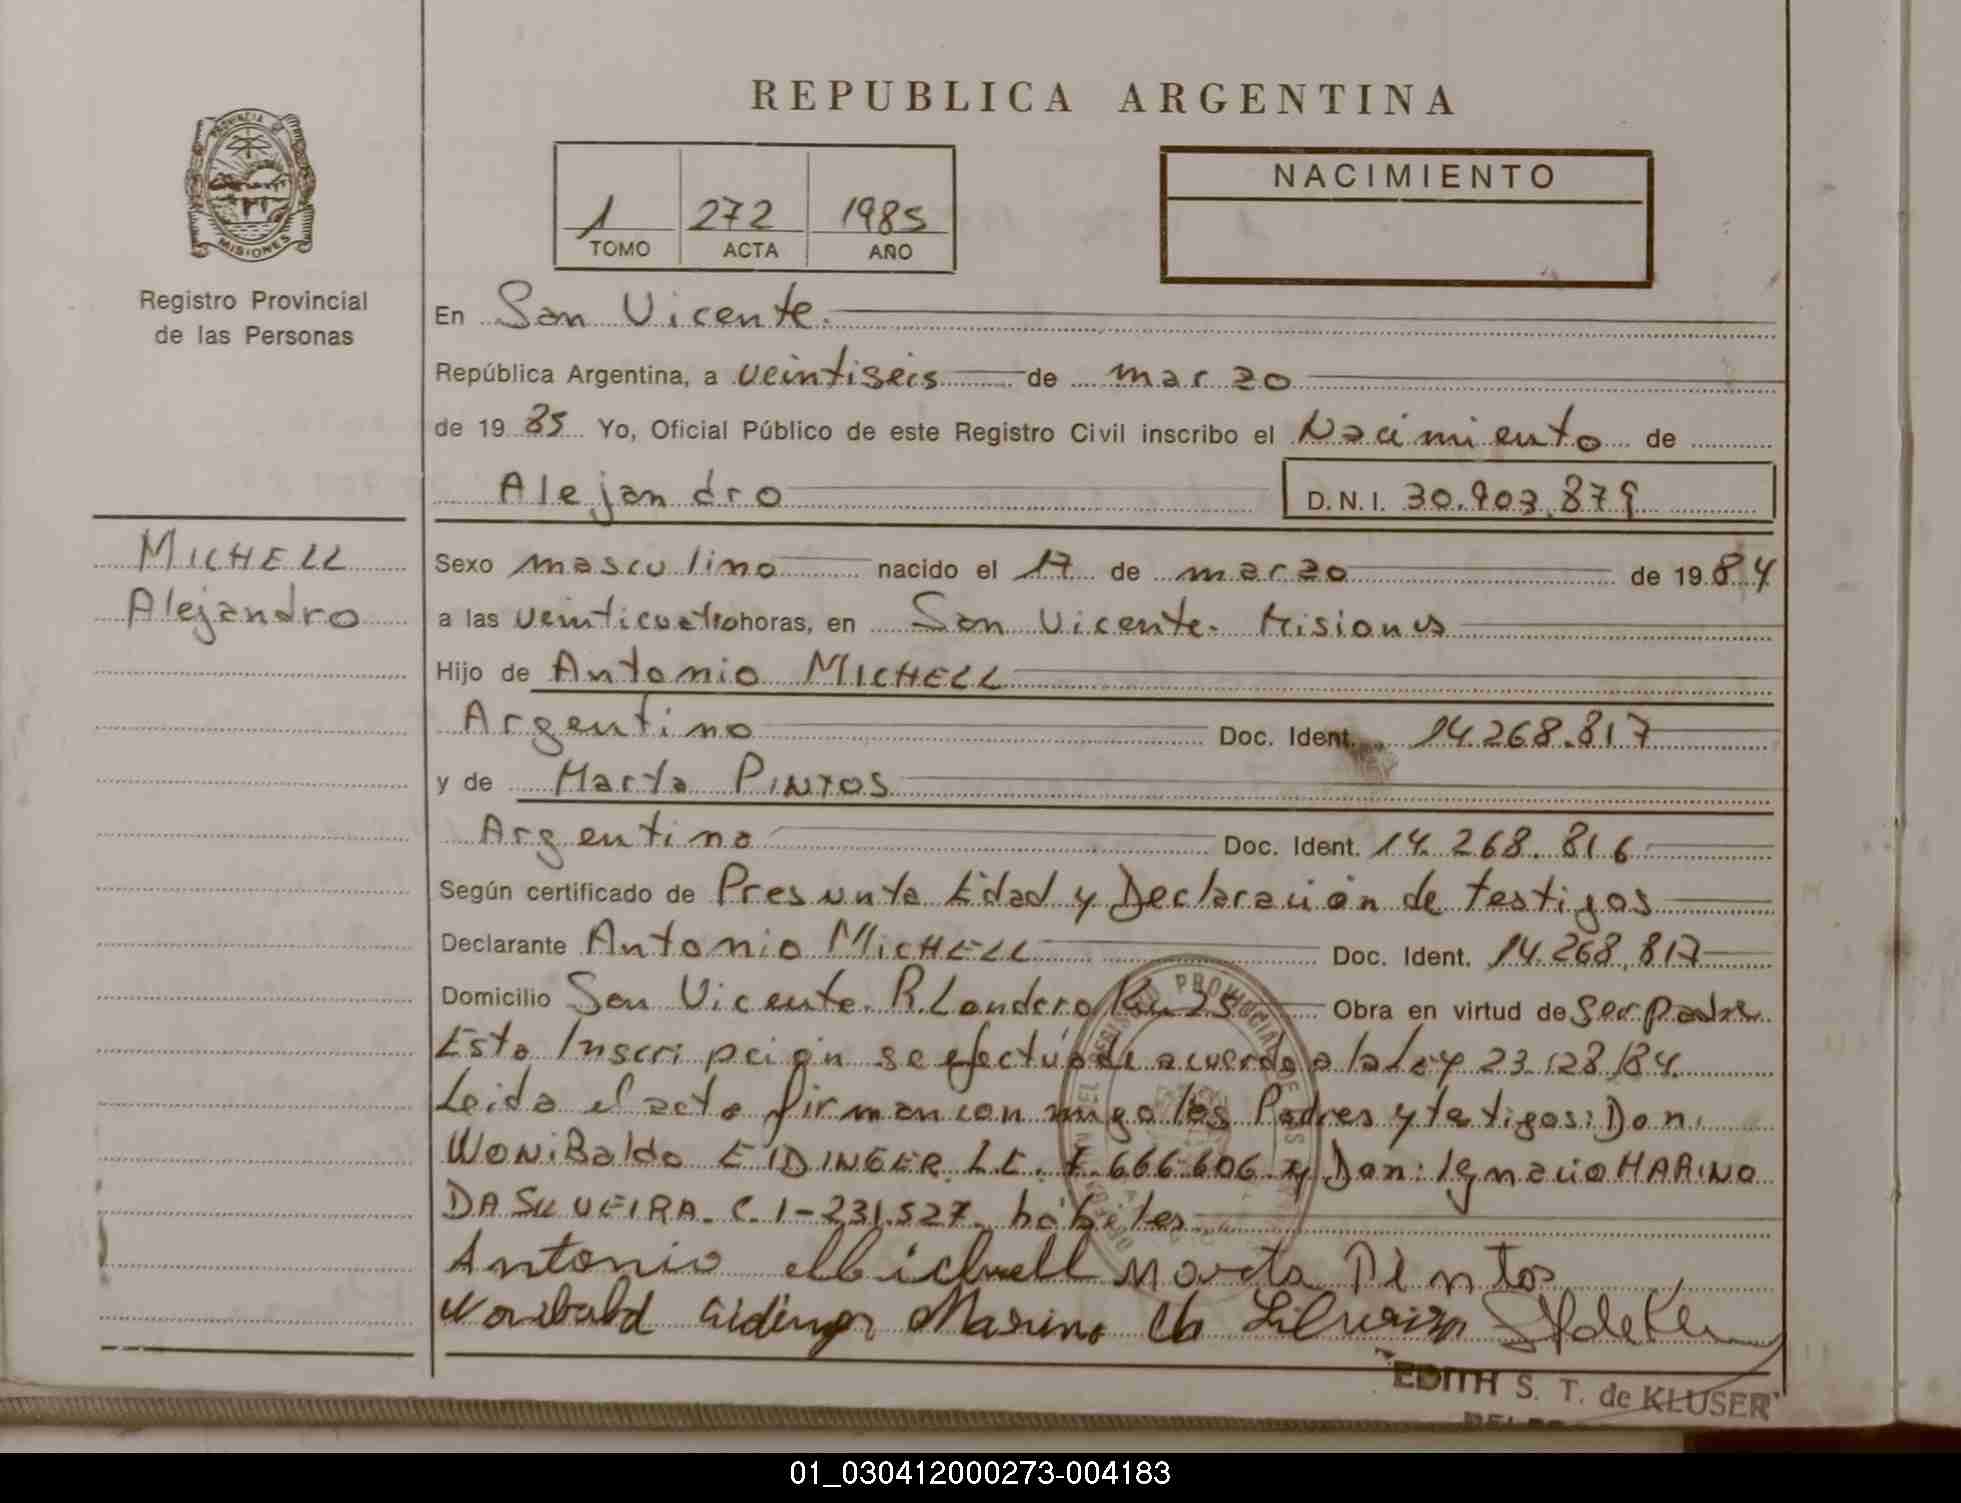 REPUBLICA ARGENTINA
PROVINCIA DE
MISIONES
Registro Provincial
de las Personas
1 272 1985
TOMO ACTA AÑO
NACIMIENTO
En San Vicente.
República Argentina, a veintiseis de marzo
de 19 85 Yo, Oficial Público de este Registro Civil inscribo el Nacimiento de
Alejandro D.N.I. 30.903.879
MICHELL
Alejandro
Sexo masculino nacido el 17 de marzo de 1984
a las veinticuatro horas, en San Vicente. Misiones
Hijo de Antonio MICHELL
Argentino Doc. Ident. 14.268.817
y de Marta PINTOS
Argentina Doc. Ident. 14.268.816
Según certificado de Presunta Edad y Declaración de testigos
Declarante Antonio MICHELL Doc. Ident. 14.268.817
Domicilio San Vicente. R. Londero Km 25 Obra en virtud de ser padre
Esta Inscripción se efectúa de acuerdo a la Ley 23.128/84.
Leida el acta firman con migo los Padres y testigos: Don.
WONiBaldo EIDINGER. L.E. 7.666.606 y Don: Ignacio MARINO
DA SILVEIRA. C.I-231.527. hábiles
Antonio Michell Marta Pintos
Wonibald Eidinger Marino da Silveira
EDITH S. T. de KLUSER
01_030412000273-004183